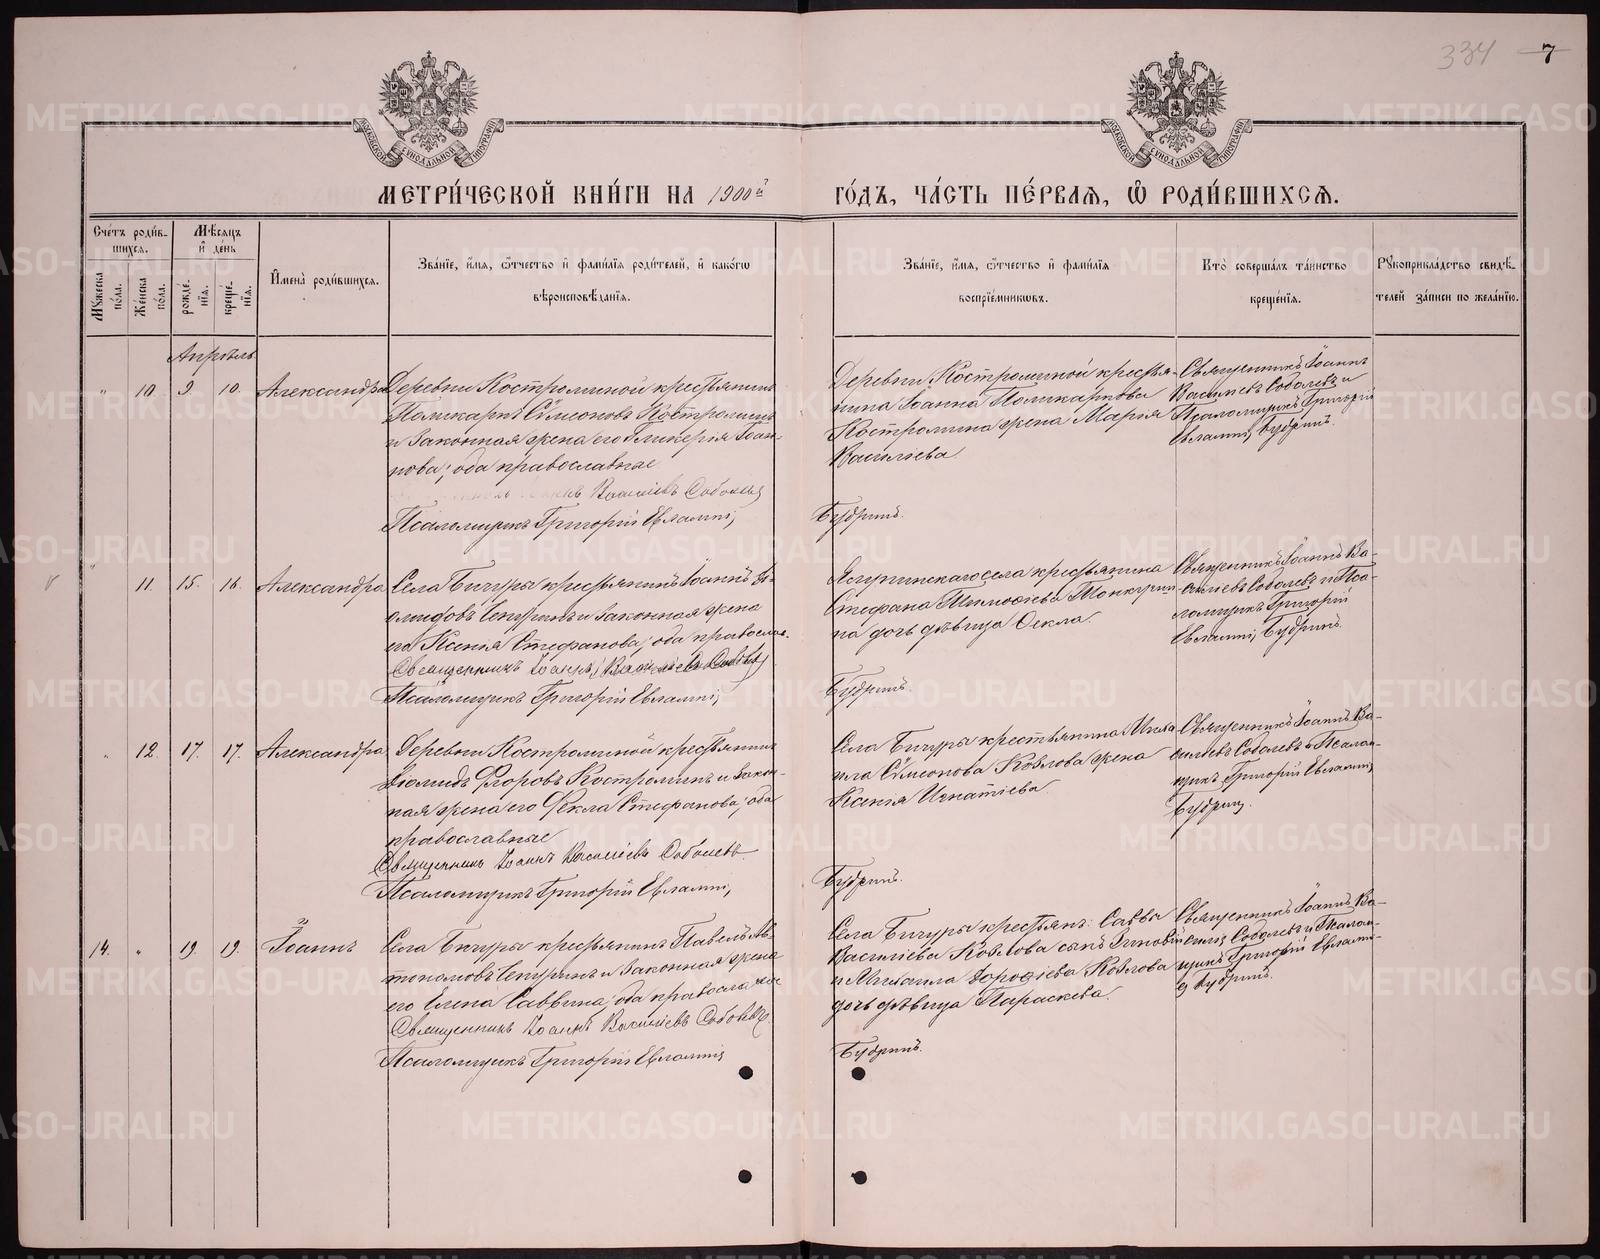 334 7
МОСКОВСКОЙ СѴНОДАЛЬНОЙ ТИПОГРАФІИ
МОСКОВСКОЙ СѴНОДАЛЬНОЙ ТИПОГРАФІИ
МЕТРИ́ЧЕСКОЙ КНИ́ГИ НА 1900й ГО́ДЪ, ЧА́СТЬ ПЕ́РВАЯ, Ѡ РОДИ́ВШИХСЯ.
Сче́тъ роди́в-
шихся.
Мꙋжеска по́ла.
Же́нска по́ла.
Мѣ́сяцъ
и҆ де́нь
рожде́-
нїѧ.
креще́-
нїѧ.
И҆мена̀ роди́вшихсѧ.
Зва́нїе, и҆́мѧ, ѻ҆́тчество и҆ фами́лїѧ роди́телей, и҆ како́гѡ
вѣроисповѣ́данїѧ.
Зва́нїе, и҆́мѧ, ѻ҆́тчество и҆ фами́лїѧ
воспрїе́мникѡвъ.
Кто̀ соверша́лъ та́инство
креще́нїѧ.
Рꙋкоприкла́дство свидѣ́-
телей за́писи по жела́нїю.
Апрѣль
" 10. 9. 10. Александра
Деревни Костроминой крестьянинъ
Поликарпъ Сѷмеоновъ Костроминъ
и законная жена его Гликерія Іоан-
нова; оба православные
Василіевъ Соболевъ
Псаломщикъ Григорій Евлампі,
Деревни Костроминой крестья-
нина Іоанна Поликарпова
Костромина жена Марія
Василіева.
Бубринъ.
Священникъ Іоаннъ
Василіевъ Соболевъ и
Псаломщикъ Григорій
Евлампі, Бубринъ.
" 11. 15. 16. Александра
Села Бичуры крестьянинъ Іоаннъ
законная жена
его Ксенія Стефанова; оба православ.
Священникъ Іоаннъ Василіевъ Соболевъ
Псаломщикъ Григорій Евлампі,
села крестьянина
Стефана Тимофеева
на дочь дѣвица Ѳекла.
Бубринъ.
Священникъ Іоаннъ Ва-
силіевъ Соболевъ и Пса-
ломщикъ Григорій
Евлампі, Бубринъ.
" 12. 17. 17. Александра
Деревни Костроминой крестьянинъ
Ѳеоровъ Костроминъ и закон-
ная жена его Ѳекла Стефанова; оба
православные
Священникъ Іоаннъ Василіевъ Соболевъ.
Псаломщикъ Григорій Евлампі,
Села Бичуры крестьянина Миха-
ила Сѷмеонова Козлова жена
Ксенія Игнатіева.
Бубринъ.
Священникъ Іоаннъ Ва-
силіевъ Соболевъ и Псалом-
щикъ Григорій Евлампі,
Бубрин.
14. " 19. 19. Іоаннъ
Села Бичуры крестьянинъ Павелъ Ав-
тономовъ и законная жена
его Елена Саввина; оба православные
Священникъ Іоаннъ Василіевъ Соболевъ.
Псаломщикъ Григорій Евлампі
Села Бичуры крестьян: Саввы
Василіева Козлова сынъ Зиновій
и Михаила Дороѳеева Козлова
дочь дѣвица Параскева.
Бубринъ.
Священникъ Іоаннъ Ва-
силіе Соболевъ и Псалом-
щикъ Григорій Евлампі-
Бубринъ.
METRIKI.GASO-URAL.RU